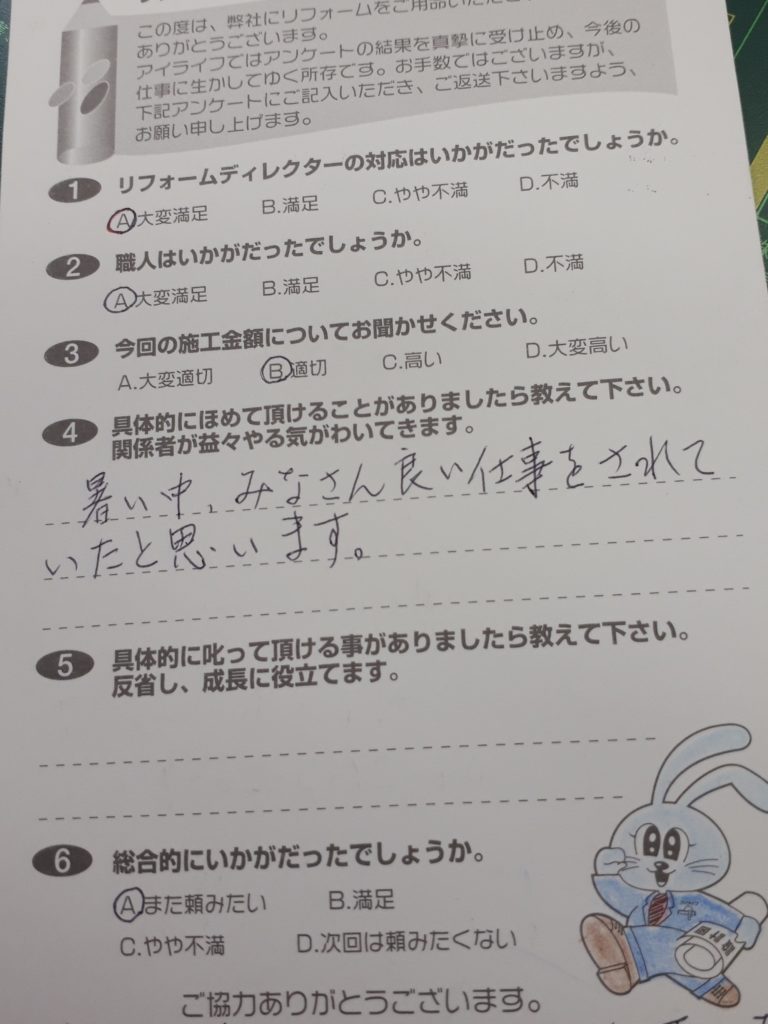 この度は、弊社にリフォームをご用命いただき
ありがとうございます。
アイライフではアンケートの結果を真摯に受け止め、今後の
仕事に生かしてゆく所存です。お手数ではございますが、
下記アンケートにご記入いただき、ご返送下さいますよう、
お願い申し上げます。
1 リフォームディレクターの対応はいかがだったでしょうか。
A.大変満足 B.満足 C.やや不満 D.不満
2 職人はいかがだったでしょうか。
A.大変満足 B.満足 C.やや不満 D.不満
3 今回の施工金額についてお聞かせください。
A.大変適切 B.適切 C.高い D.大変高い
4 具体的にほめて頂けることがありましたら教えて下さい。
関係者が益々やる気がわいてきます。
暑い中、みなさん良い仕事をされて
いたと思います。
5 具体的に叱って頂ける事がありましたら教えて下さい。
反省し、成長に役立てます。
6 総合的にいかがだったでしょうか。
A.また頼みたい B.満足
C.やや不満 D.次回は頼みたくない
設計図
ご協力ありがとうございます。